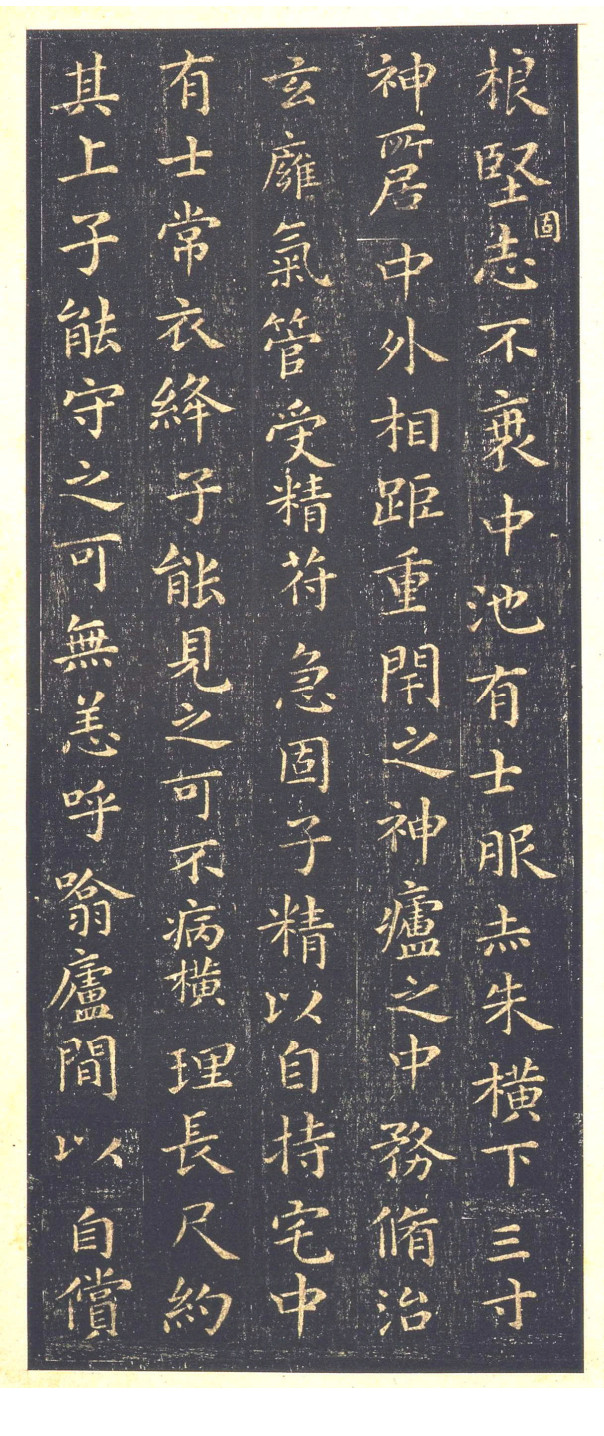 根堅志固不衰中池有士服赤朱橫下三寸
神所居中外相距重閉之神廬之中務脩治
玄廱氣管受精符急固子精以自持宅中
有士常衣絳子能見之可不病橫理長尺約
其上子能守之可無恙呼噏廬間以自償